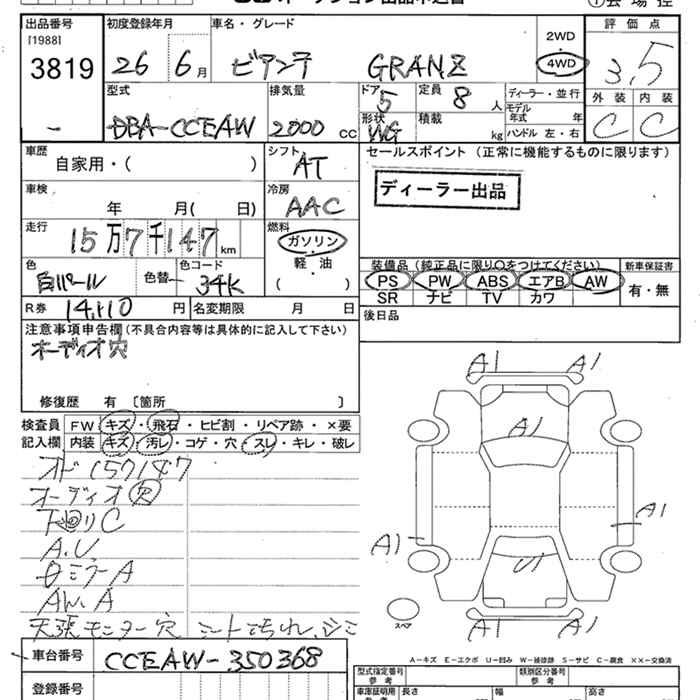 出品番号 初度登録年月 車名・グレード 評価点
[1988]
3819 26 6月 ビアンテ GRANZ 2WD 4WD 3.5
型式 排気量 ドア 5 定員 8人 ディーラー・並行 外装 内装
DBA-CCEAW 2000 CC 形状 WG 積載 kg モデル年式 年 ハンドル 左・右 C C
車歴 シフト セールスポイント (正常に機能するものに限ります)
自家用・( ) AT
ディーラー出品
車検 冷房
年 月( 日) AAC
走行 燃料
15万7千147km ガソリン
軽・油
( )
装備品 (純正品に限り○をつけてください) 新車保証書
色 色替 色コード
白パール 34K
PS PW ABS エアB AW 有・無
SR ナビ TV カワ
R券 14,110円 名変期限 月 日
後日品
注意事項申告欄 (不具合内容等は具体的に記入して下さい)
オーディオ穴
修復歴 有 〔箇所 〕
検査員 FW キズ・飛石・ヒビ割・リペア跡・×要
記入欄 内装 キズ・汚レ・コゲ・穴・スレ・キレ・破レ
オド157147
オーディオ穴
下回りC
A.U
ミラーA
AW.A
天張モニター穴 シートよごれ、シミ
A1 A1
A1
A1
A1
U1
A1 A1
スペア
車台番号 CCEAW-350368
A-キズ E-エクボ U-凹み W-補修跡 S-サビ C-腐食 ××-交換済
登録番号
型式指定番号 参考 類別区分番号 参考
車庫証明用 参考 長さ 幅 高さ